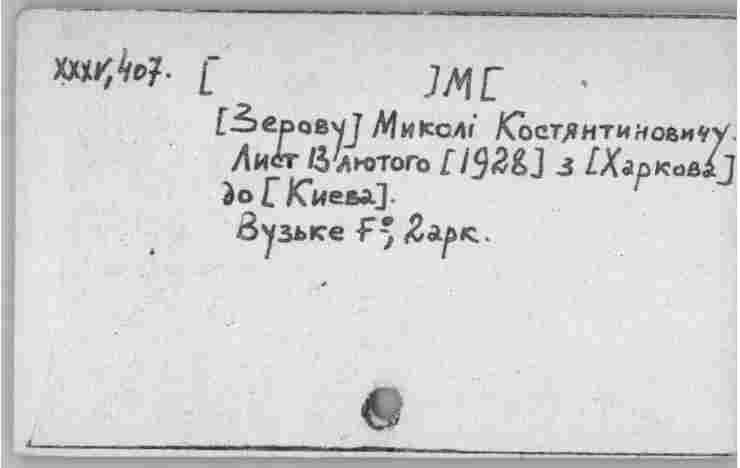 XXXV,407. [ ]М[
[Зерову] Миколі Костянтиновичу.
Лист 13 лютого [1928] з [Харкова]
до [Києва].
Вузьке F°, 2арк.